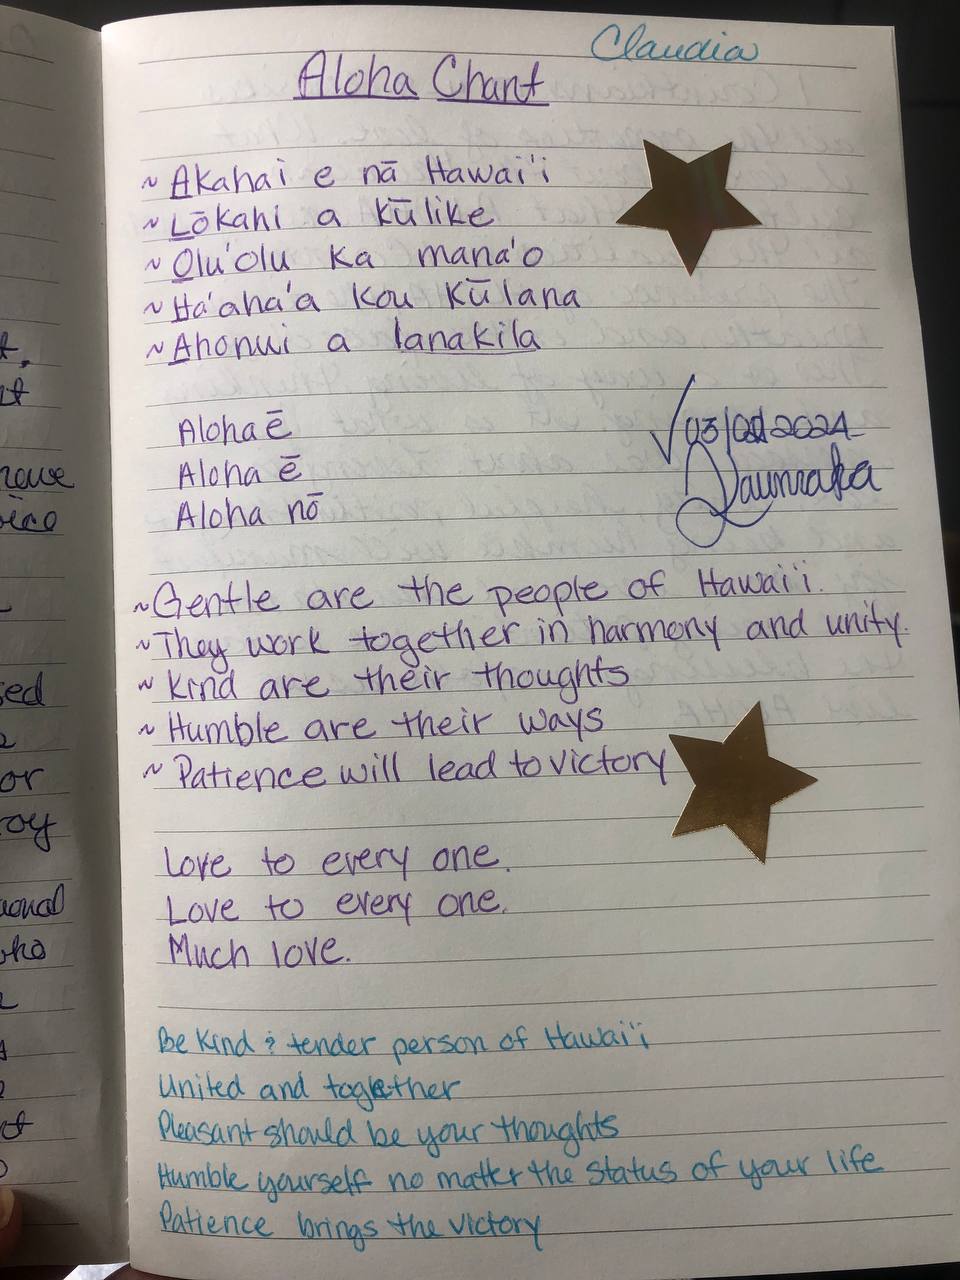 Claudia
Aloha Chant
~ Akahai e nā Hawai'i
~ Lōkahi a Kūlike
~ Olu'olu ka mana'o
~ Ha'aha'a kou Kūlana
~ Ahonui a lanakila
Aloha ē
Aloha ē
Aloha nō
~Gentle are the people of Hawai'i.
~They work together in harmony and unity.
~ Kind are their thoughts
~ Humble are their ways
~ Patience will lead to victory
Love to every one.
Love to every one.
Much love.
Be Kind & tender person of Hawai'i
United and together
Pleasant should be your thoughts
Humble yourself no matter the status of your life
Patience brings the victory
sed
or
oy